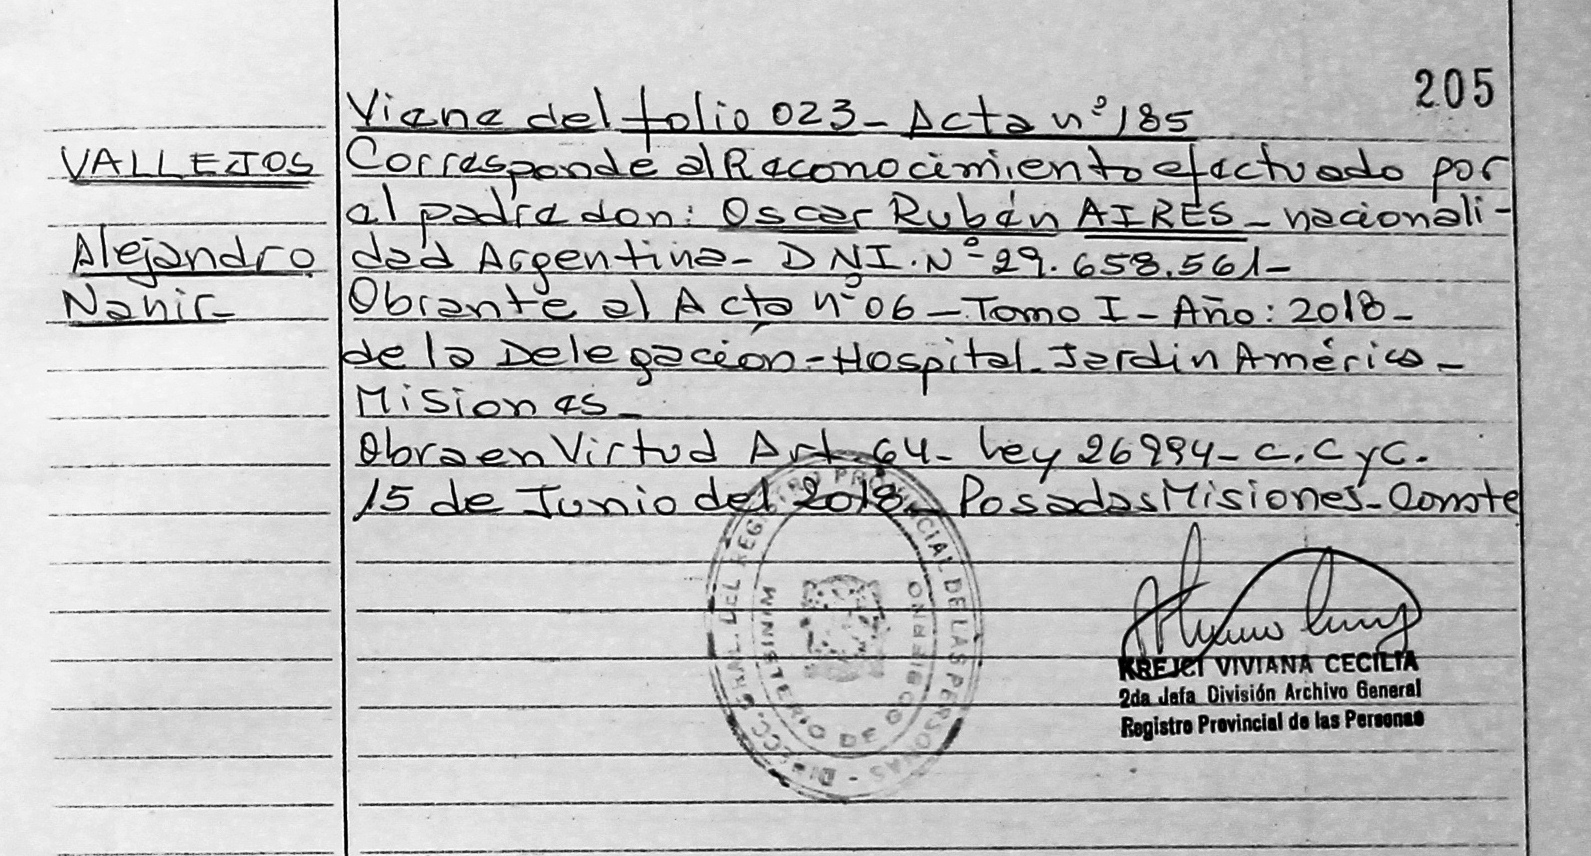 205
Viene del folio 023- Acta nº 185
VALLEJOS
Alejandro
Nahir-
Corresponde al Reconocimiento efectuado por
el padre don: Oscar Rubén AIRES - nacionali-
dad Argentina- DNI. Nº 29.658.561-
Obrante al Acta nº 06 - Tomo I - Año: 2018-
de la Delegación-Hospital. Jardin América-
Misiones-
Obra en Virtud Art. 64- Ley 26994- C.C y C.
15 de Junio del 2018- Posadas Misiones- Conste
DIRECC. GRAL. DEL REGISTRO PROVINCIAL DE LAS PERSONAS -
MINISTERIO DE GOBIERNO
KREJCI VIVIANA CECILIA
2da Jefa División Archivo General
Registro Provincial de las Personas